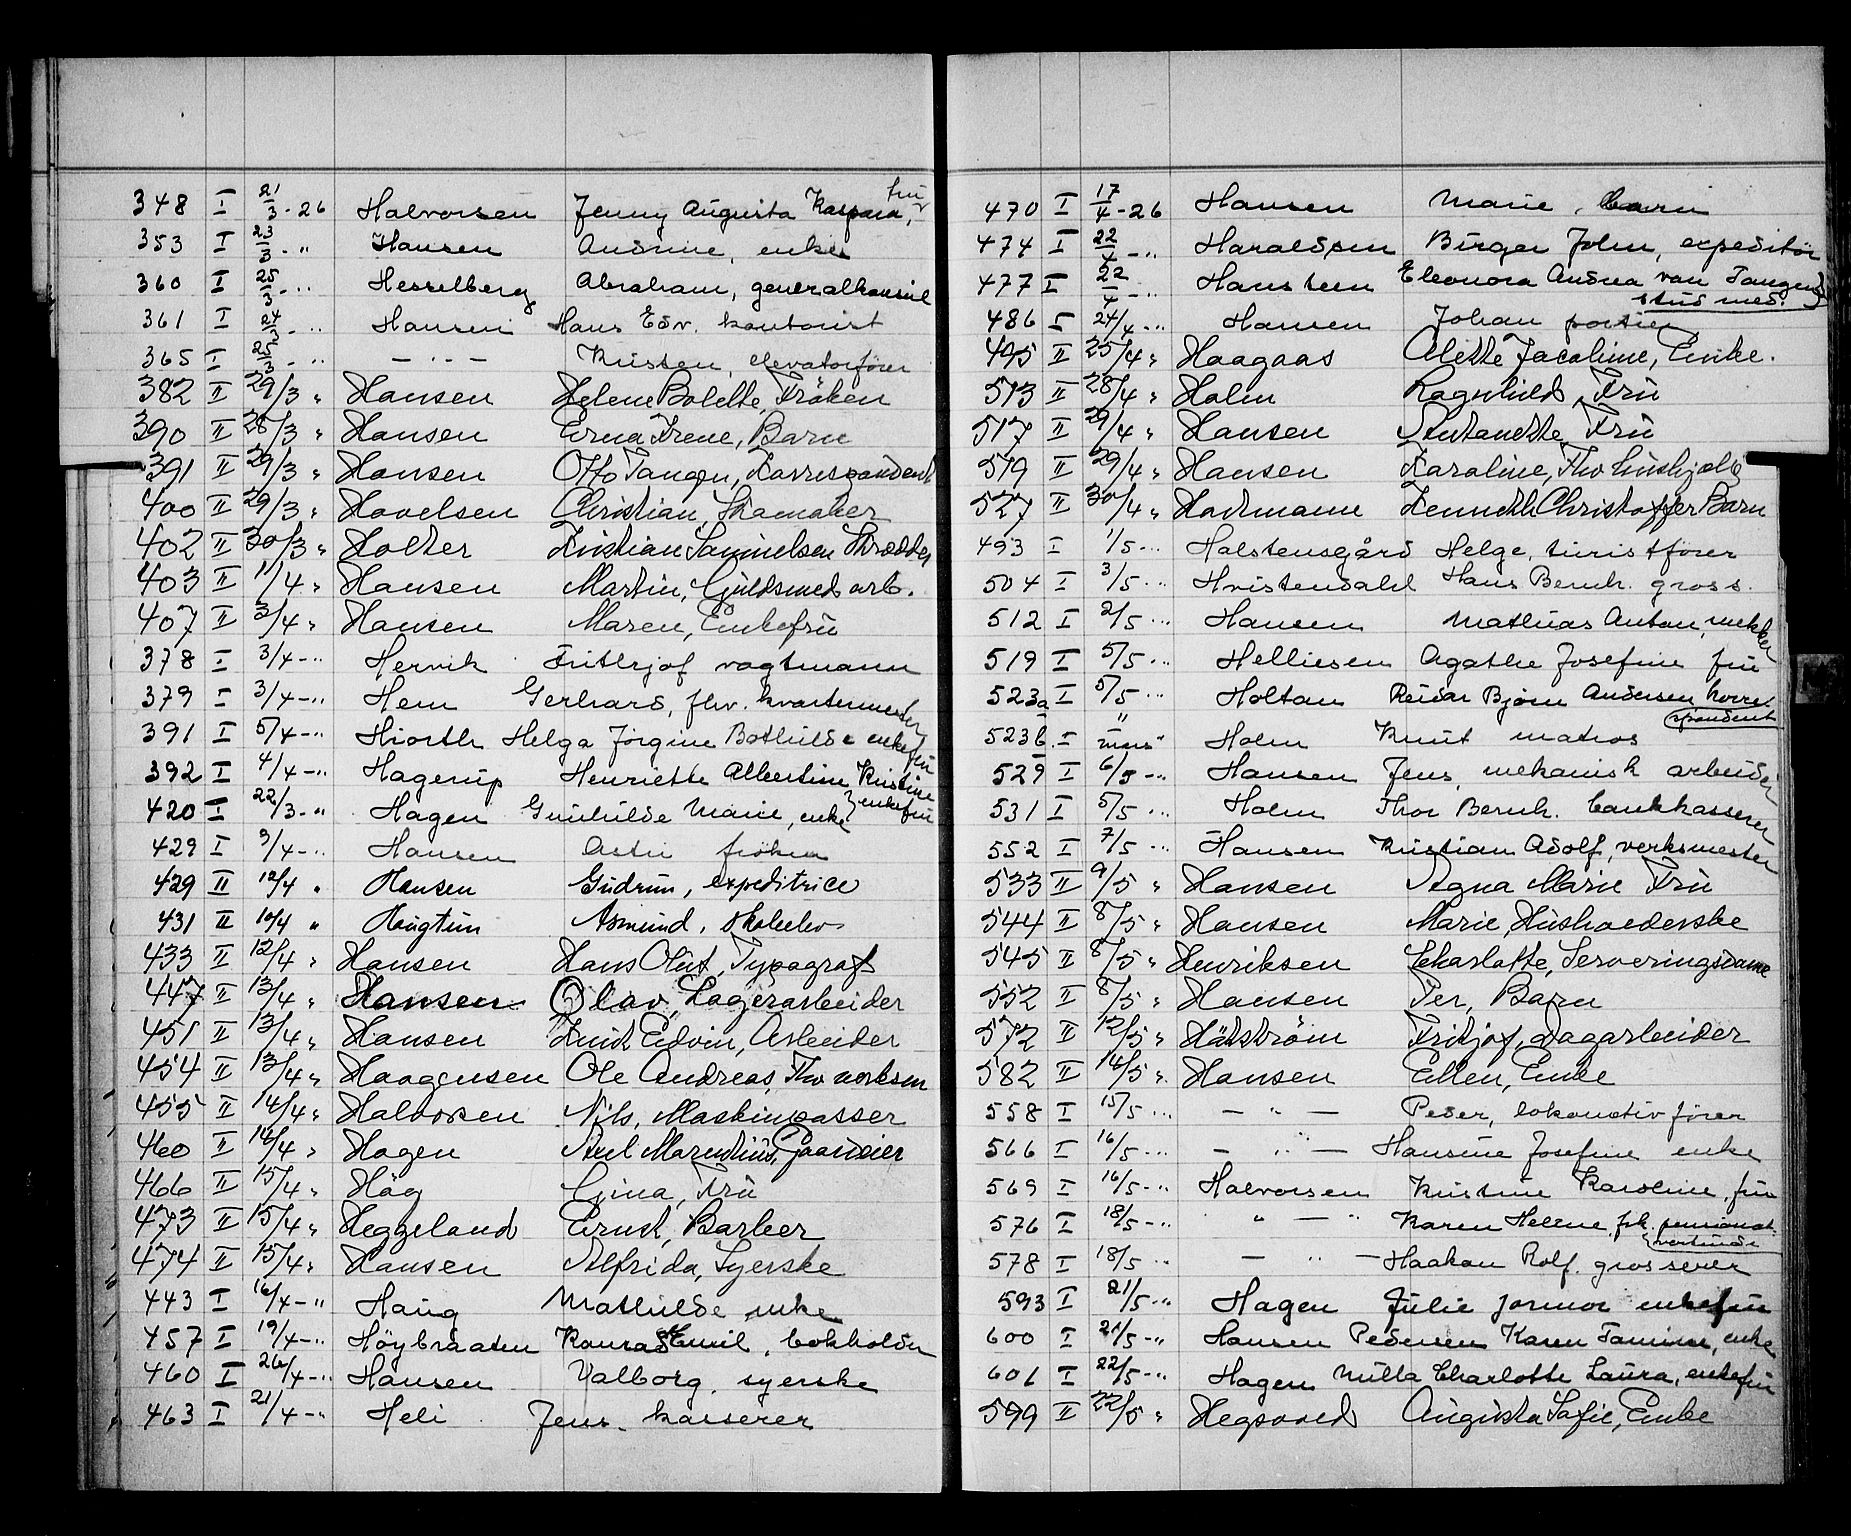 348 I 21/3-26 Halvorsen Jenny Augusta Kaspara, fru
353 I 23/3-" Hansen Andrine, enke
360 I 25/3-" Hesselberg Abraham, generalkonsul
361 I 24/3-" Hansen Hans Edv. kontorist
365 I 25/3-" - " - Kristen, elevatorfører
382 II 29/3 " Hansen Helene Bolette, Frøken
390 II 28/3 " Hansen Erna Irene, Barn
391 II 29/3 " Hansen Otto Tangen, Korrespondent
400 II 29/3 " Hovelsen Christian, Skomaker
402 II 30/3 " Holter Kristian Samuelsen Skrædder
403 II 1/4 " Hansen Martin, Guldsmed arb.
407 II 3/4 " Hansen Maren, Enkefru
378 I 3/4-" Hervik Frithjof vagtmann
379 I 3/4-" Hem Gerhard, fhv. kvartermester
391 I 5/4-" Hiorth Helga Jørgine Bothilde enkefru
392 I 4/4-" Hagerup Henriette Albertine Kristine enkefru
420 I 22/3-" Hagen Gunhilde Marie, enke
429 I 9/4-" Hansen Astri frøken
429 II 12/4 " Hansen Gudrun, expeditrice
431 II 10/4 " Haugtun Asmund, skoleelev
433 II 12/4 " Hansen Hans Olut, Typograf
447 II 13/4 " Hansen Olav, Lagerarbeider
451 II 13/4 " Hansen Knut Edvin, Arbeider
454 II 13/4 " Haagensen Ole Andreas, Fhv verksm
455 II 14/4 " Halvorsen Nils, Maskinpasser
460 II 14/4 " Hagen Axel Marentius, Gaardeier
466 II 15/4 " Høg Gina, Fru
473 II 15/4 " Heggeland Ernst, Barber
474 II 15/4 " Hansen Alfrida, Syerske
443 I 16/4-" Haug Mathilde enke
457 I 19/4-" Höybraaten Konrad Emil, bokholder
460 I 26/4-" Hansen Valborg, syerske
463 I 21/4-" Heli Jens. kasserer
470 I 17/4-26 Hansen Marie, barn
474 I 22/4-" Haraldsen Birger John, expeditør
477 I 22/4-" Hansteen Eleonora Andrea van Tangen stud med.
486 I 24/4-" Hansen Johan portier
495 II 25/4 " Haagaas Alette Jacobine, Enke.
513 II 28/4 " Holm Ragnhild, Fru
517 II 29/4 " Hansen Antonette, Fru
519 II 29/4 " Hansen Karoline, Fhv hushjelp
527 II 30/4 " Hartmann Kenneth Christoffer Barn
493 I 1/5-" Halstensgård Helge, turistfører
504 I 3/5-" Hvistendahl Hans Bernh. gross.
512 I 2/5-" Hansen Mathias Anton, vekker
519 I 5/5-" Helliesen Agathe Josefine fru
523a I 5/5-" Holtan Reidar Bjørn Andersen korrespondent
523b. I " Holm Knut matros
529 I 6/5-" Hansen Jens, mekanisk arbeider
531 I 5/5-" Holm Thor Bernh. bankkasserer
552 I 7/5-" Hansen Kristian Adolf, verksmester
533 II 9/5 " Hansen Agna Marie Fru
544 II 8/5 " Hansen Marie, Husholderske
545 II 8/5 " Henriksen Charlotte, Serveringsdame
552 II 8/5 " Hansen Per, Barn
572 II 12/5 " Håkstrøm Fritjof, Dagarbeider
582 II 14/5 " Hansen Ellen, Enke
558 I 15/5-" - " - Peder, lokomotivfører
566 I 16/5-" - " - Hansine Josefine enke
569 I 16/5-" Halvorsen Kristine Karoline, fru
576 I 18/5-" " - " Karen Helene, frk. pensionat vertinde
578 I 18/5-" - " - Haakon Rolf. grosserer
593 I 21/5-" Hagen Julie Jormoe enkefru
600 I 21/5-" Hansen Pedersen Karen Tamine, enke
601 I 22/5-" Hagen Milla Charlotte Laura, enkefru
599 II 22/5 " Hegsvold Augusta Sofie, Enke